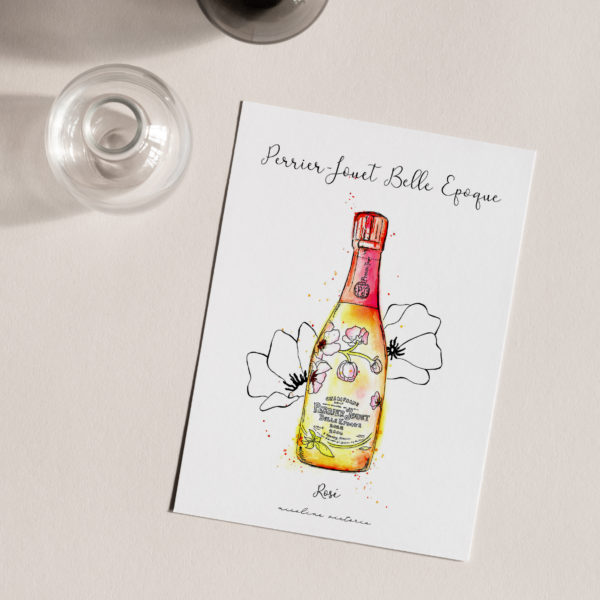 Perrier-Jouet Belle Epoque
CHAMPAGNE
PERRIER-JOUET
BELLE EPOQUE
ROSÉ
Rosé
nicoline victoria